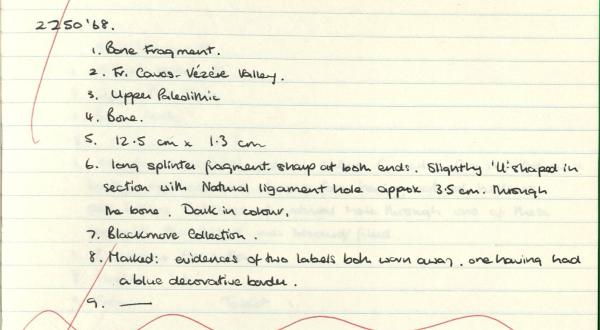 2250'68.
1. Bone Fragment.
2. Fr. Caves - Vézère Valley.
3. Upper Paleolithic
4. Bone.
5. 12.5 cm x 1.3 cm
6. long splinter fragment. sharp at both ends. Slightly 'U' shaped in
section with Natural ligament hole approx 3.5 cm. through
the bone. Dark in colour.
7. Blackmore Collection.
8. Marked: evidences of two labels both worn away. one having had
a blue decorative border.
9. —